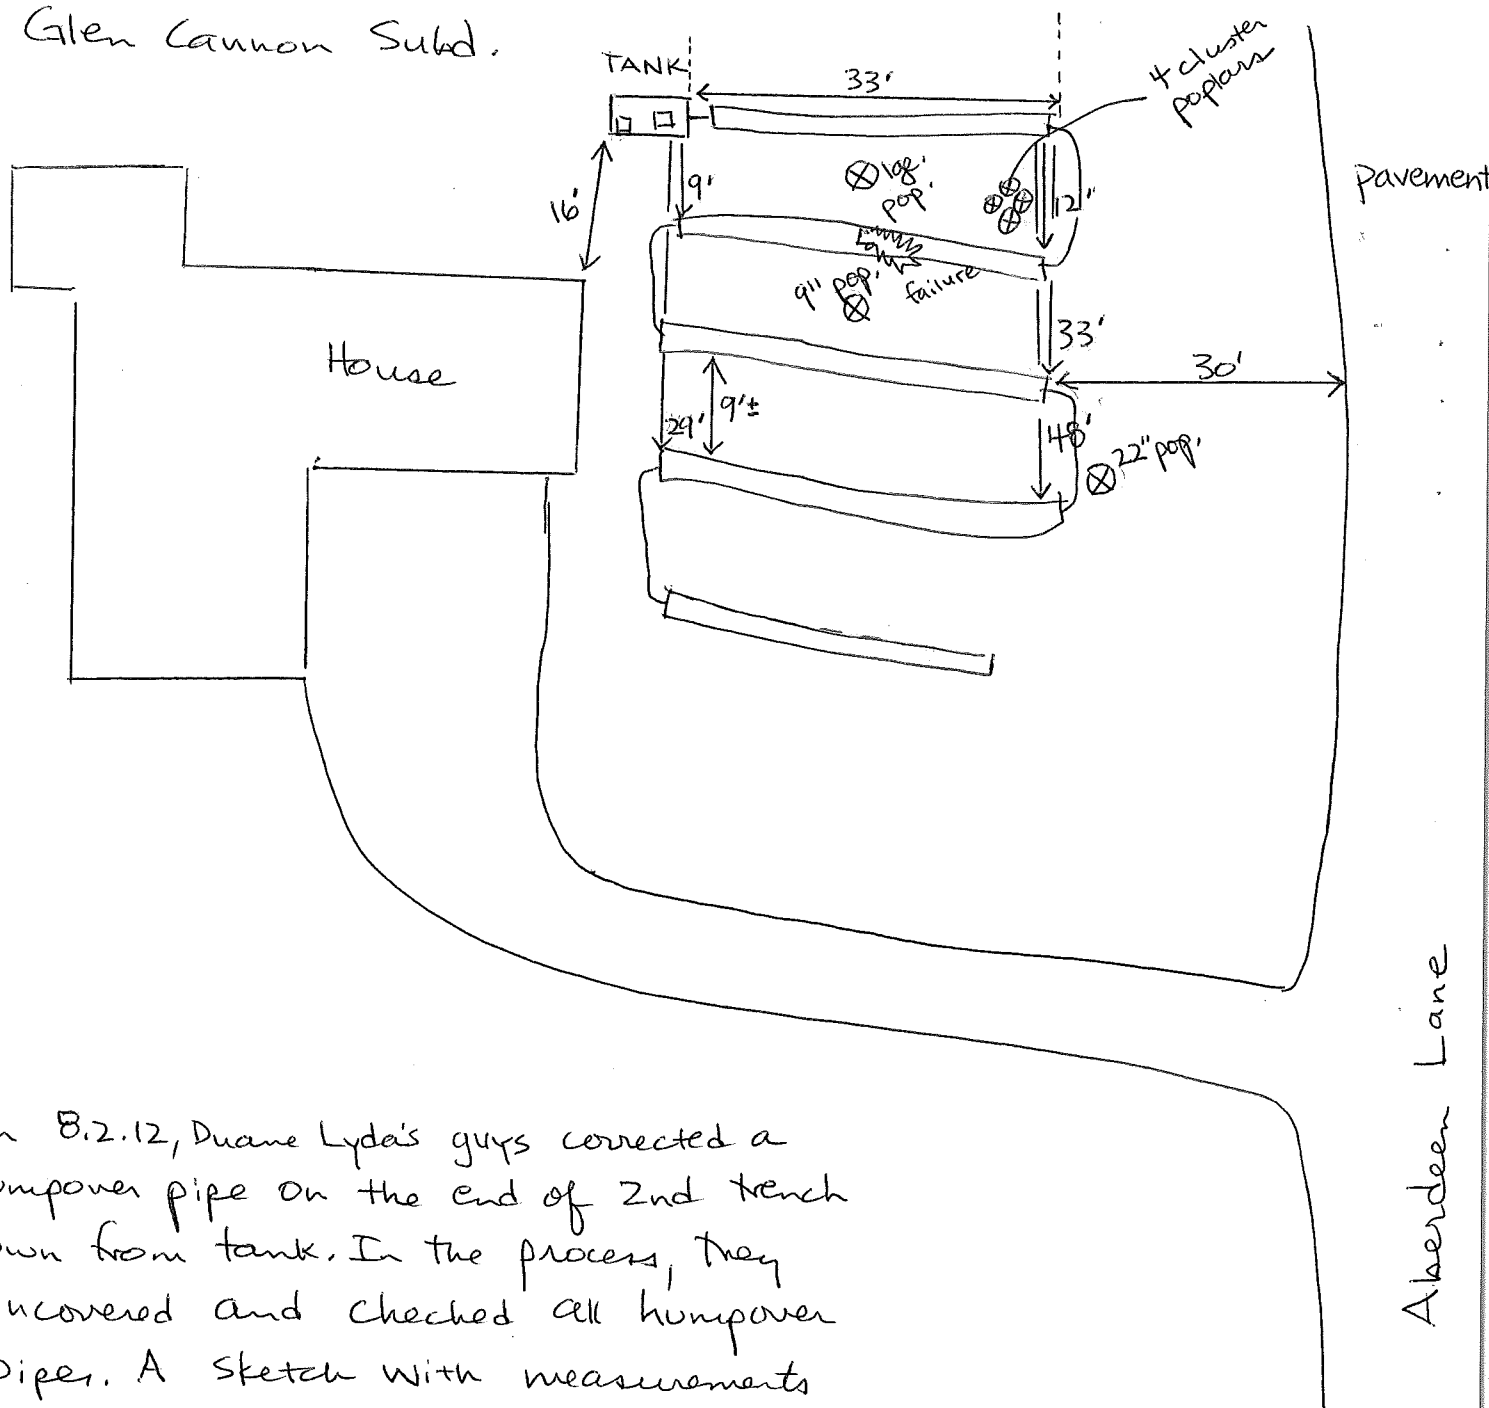 Glen Cannon Subd.
TANK
33'
4 cluster
poplars
pavement
16'
9'
pop.
12"
9" pop.
failure
House
33'
30'
9'±
29'
48'
22" pop.
Aberdeen Lane
n 8.2.12, Duane Lyda's guys corrected a
umpover pipe on the end of 2nd trench
own from tank. In the process, they
ncovered and checked all humpover
pipes. A sketch with measurements